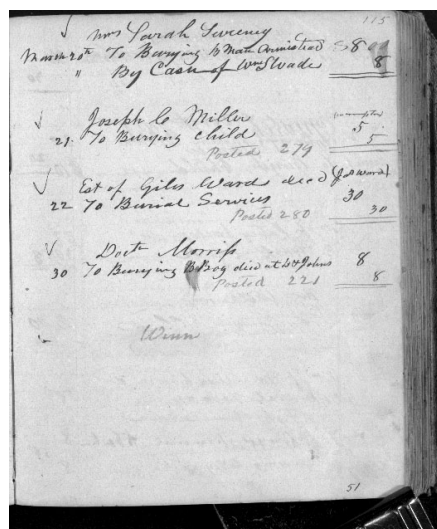 115
Mrs Sarah Sweney
March 20th To Burying B Man Armistead $8
" By Cash of Wm Slade 8
Joseph C Miller
21 To Burying Child 5
Posted 279 5
Est of Giles Ward decd (Jas Ward)
22 To Burial Services 30
Posted 280 30
Doctr Morriss
30 To Burying B Boy died at St Johns 8
Posted 221 8
Winn
51